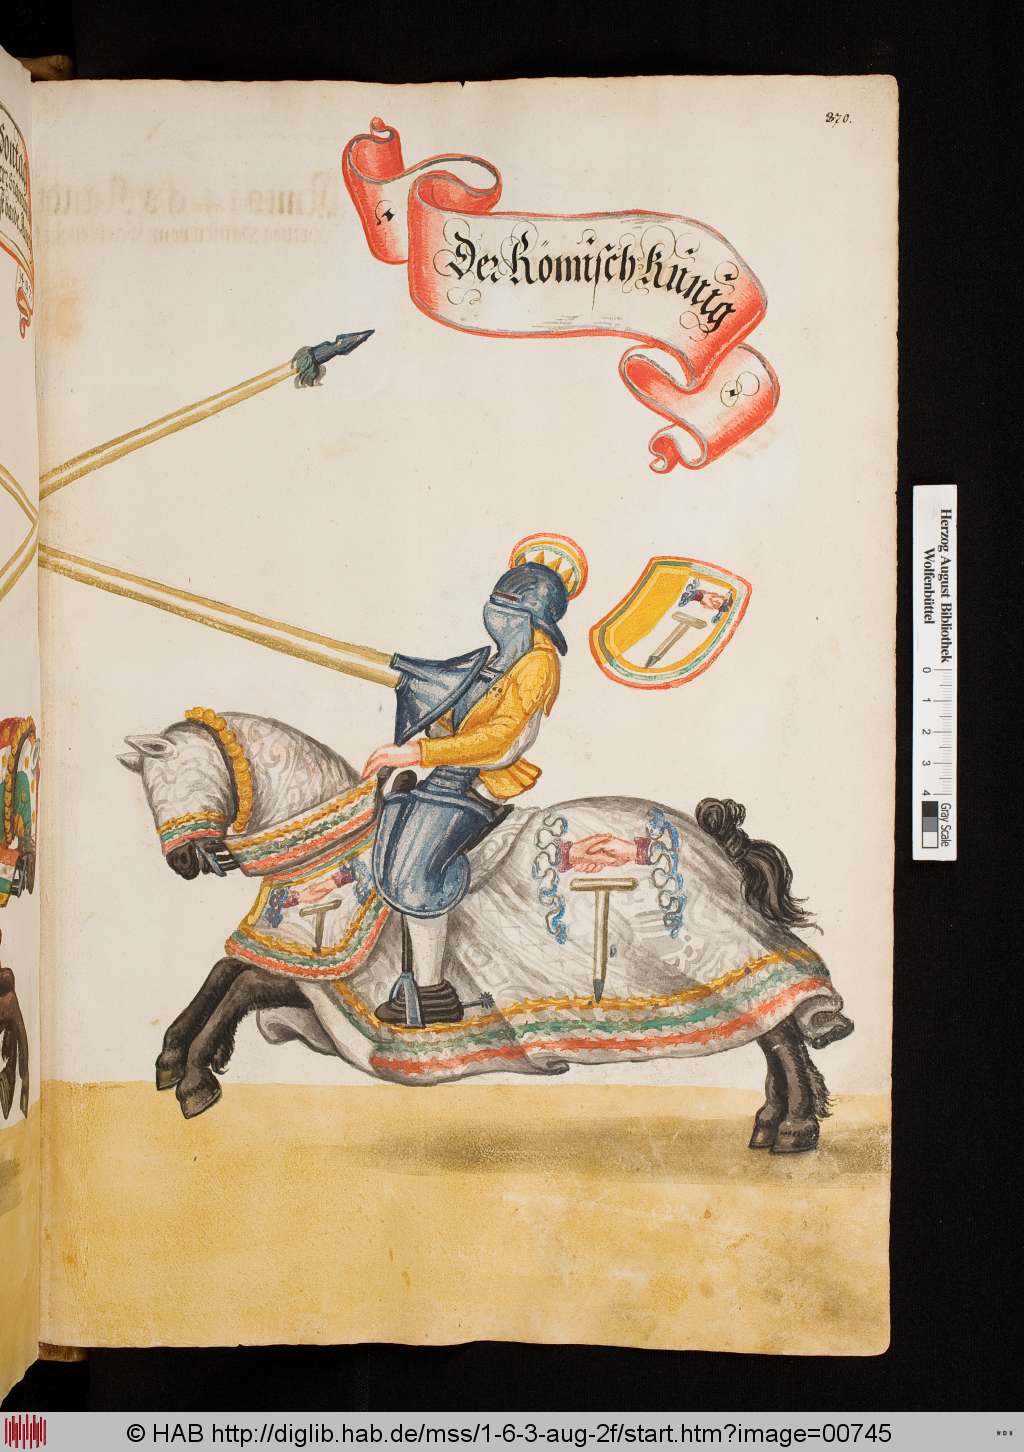 870.
Der Römisch Künig
Herzog August Bibliothek
Wolfenbüttel
0 1 2 3 4
Gray Scale
© HAB http://diglib.hab.de/mss/1-6-3-aug-2f/start.htm?image=00745